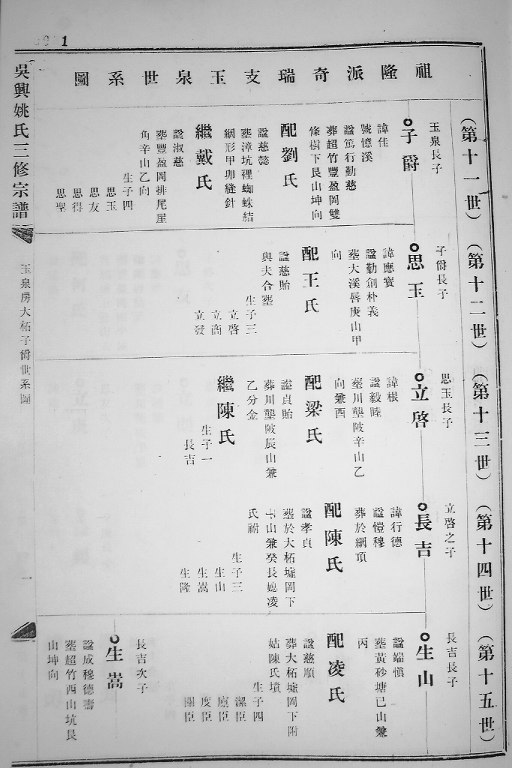 1
祖隆派奇瑞支玉泉世系圖
吳興姚氏三修宗譜
玉泉房大柘子爵世系圖
一
(第十一世)
玉泉長子
子爵
諱佳
號憶溪
諡篤行勤慈
葬超竹豐盈岡雙
條樹下艮山坤向
配劉氏
諡慈懿
葬漳坑裡蜘蛛結
網形甲卯縫針
繼戴氏
諡淑慈
葬豐盈岡排尾崖
角辛山乙向
生子四
思玉
思友
思得
思聖
(第十二世)
子爵長子
思玉
諱應寶
諡勤創朴義
葬大溪唇庚山甲
向
配王氏
諡慈貽
與夫合葬
生子三
立啓
立商
立發
(第十三世)
思玉長子
立啓
諱根
諡毅睦
葬川壟陂辛山乙
向兼酉
配梁氏
諡貞貽
葬川壟陂辰山兼
乙分金
繼陳氏
生子一
長吉
(第十四世)
立啓之子
長吉
諱行德
諡愷穆
葬於網項
配陳氏
諡孝貞
葬於大柘墟岡下
山兼癸長媳凌
氏祔
生子三
生山
生嵩
生隆
(第十五世)
長吉長子
生山
諡端愼
葬黃砂塘已山兼
丙
配凌氏
諡慈順
葬大柘墟岡下附
姑陳氏墳
生子四
潔臣
度臣
長吉次子
生嵩
諡成穆德壽
葬超竹西山坑艮
山坤向